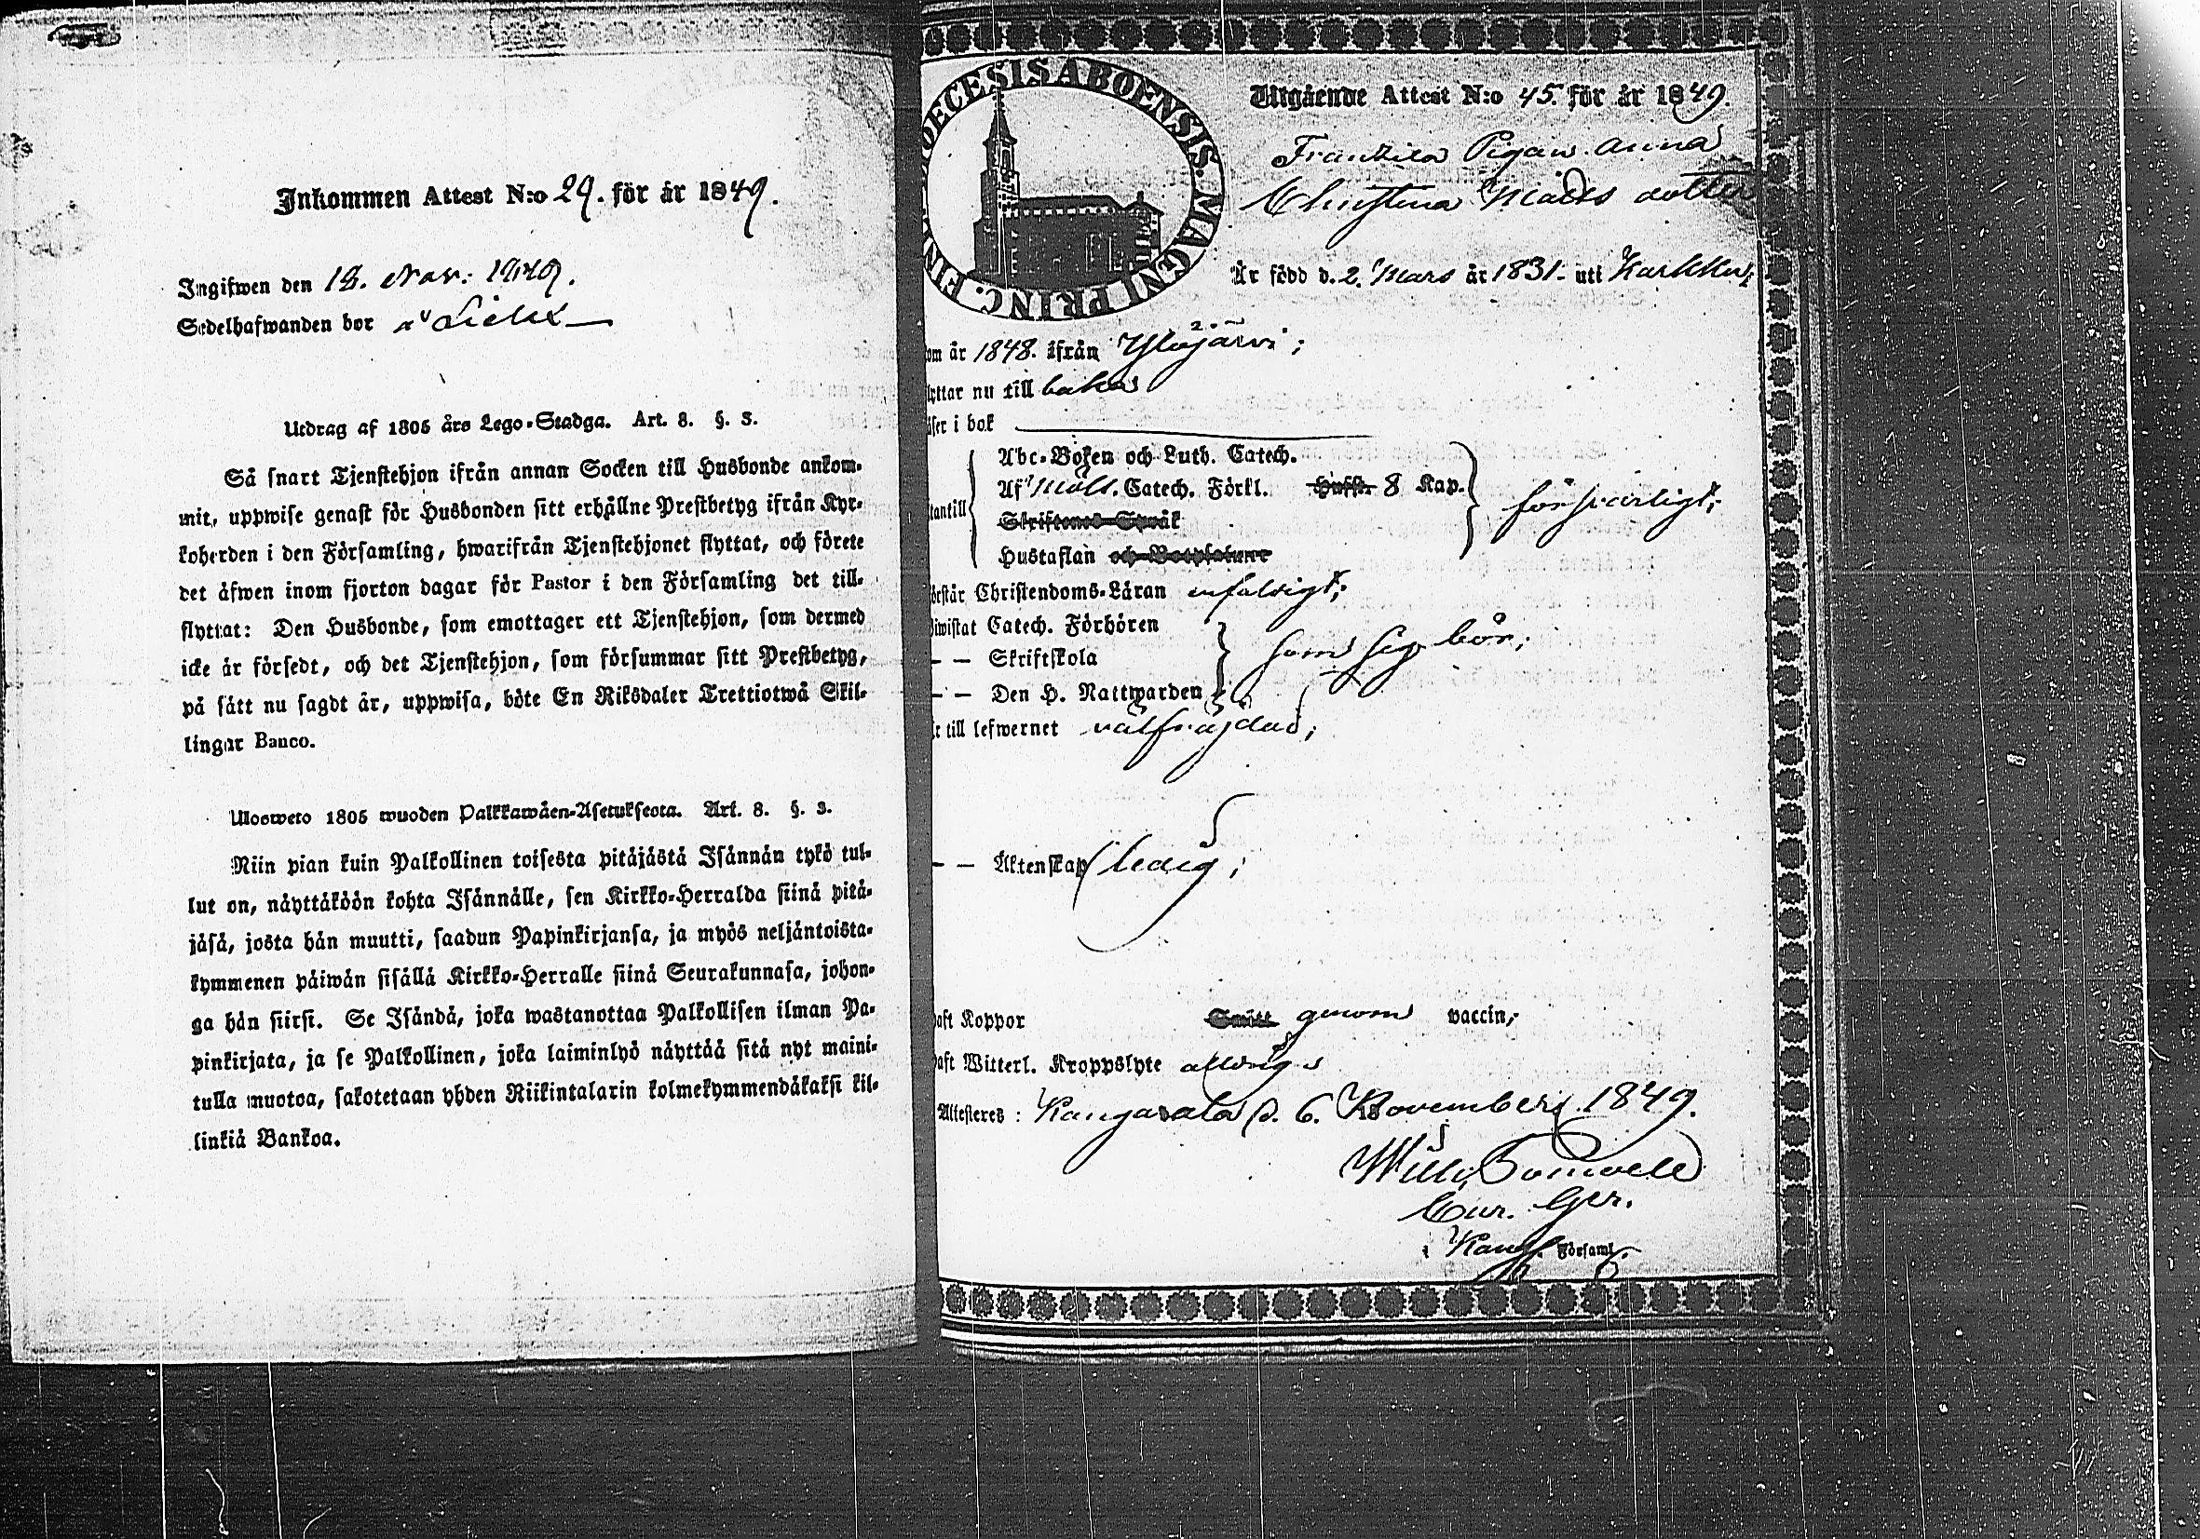 Inkommen Attest N:o 29. för år 1849.
Ingifwen den 18. Nov. 1849.
Sedelhafwanden bor
Utdrag af 1805 års Lego-Stadga. Art. 8. §. 3.
Så snart Tjenstehjon ifrån annan Socken till Husbonde ankom-
mit, uppwise genast för Husbonden sitt erhållne Prestbetyg ifrån Kyr-
koherden i den Församling, hwarifrån Tjenstehjonet flyttat, och förete
det äfwen inom fjorton dagar för Pastor i den Församling det till-
flyttat: Den Husbonde, som emottager ett Tjenstehjon, som dermed
icke är försedt, och det Tjenstehjon, som försummar sitt Prestbetyg,
på sätt nu sagdt är, uppwisa, böte En Riksdaler Trettiotwå Skil-
lingar Banco.
Ulosweto 1805 wuoden Palkkawäen-Asetuksesta. Art. 8. §. 3.
Niin pian kuin Palkollinen toisesta pitäjästä Isännän tykö tul-
lut on, näyttäköön kohta Isännälle, sen Kirkko-Herralda siinä pitä-
jäsä, josta hän muutti, saadun Papinkirjansa, ja myös neljäntoista-
kymmenen päiwän sisällä Kirkko-Herralle siinä Seurakunnasa, johon-
ga hän siirsi. Se Isändä, joka wastanottaa Palkollisen ilman Pa-
pinkirjata, ja se Palkollinen, joka laiminlyö näyttää sitä nyt maini-
tulla muotoa, sakotetaan yhden Riikintalarin kolmekymmendäkaksi kil-
linkiä Bankoa.
DECESIS ABOENSIS. MAGNI PRINC. FIN
Utgående Attest N:o 45. för år 1849.
Pigan Anna
Christina Matts dotter
Är född d. 2. Mars år 1831. uti Karkku;
om år 1848. ifrån Ylöjärvi;
lyttar nu till baka
äser i bok
Abc-Boken och Luth. Catech.
Af Möll. Catech. Förkl. Hufst. 8 Kap.
tantill
Skriftenes Språk
försvarligt;
Hustaflan och Botpsalmer
örstår Christendoms-Läran enfaldigt;
iwistat Catech. Förhören
— — Skriftskola
som sig bör;
— — Den H. Nattwarden
r till lefwernet välfräjdad;
— — Äktenskap ledig;
aft Koppor Smitt genom vaccin;
aft Witterl. Kroppslyte aldrig
Attesteres: Kangasala d. 6. November 1849.
Cur. Ger.
i Kang. Församl.